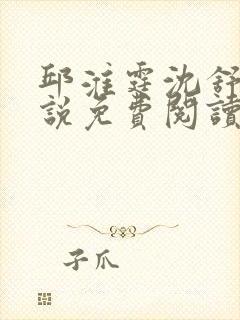 邱淮霆沈舒
說免費閱讀
子爪